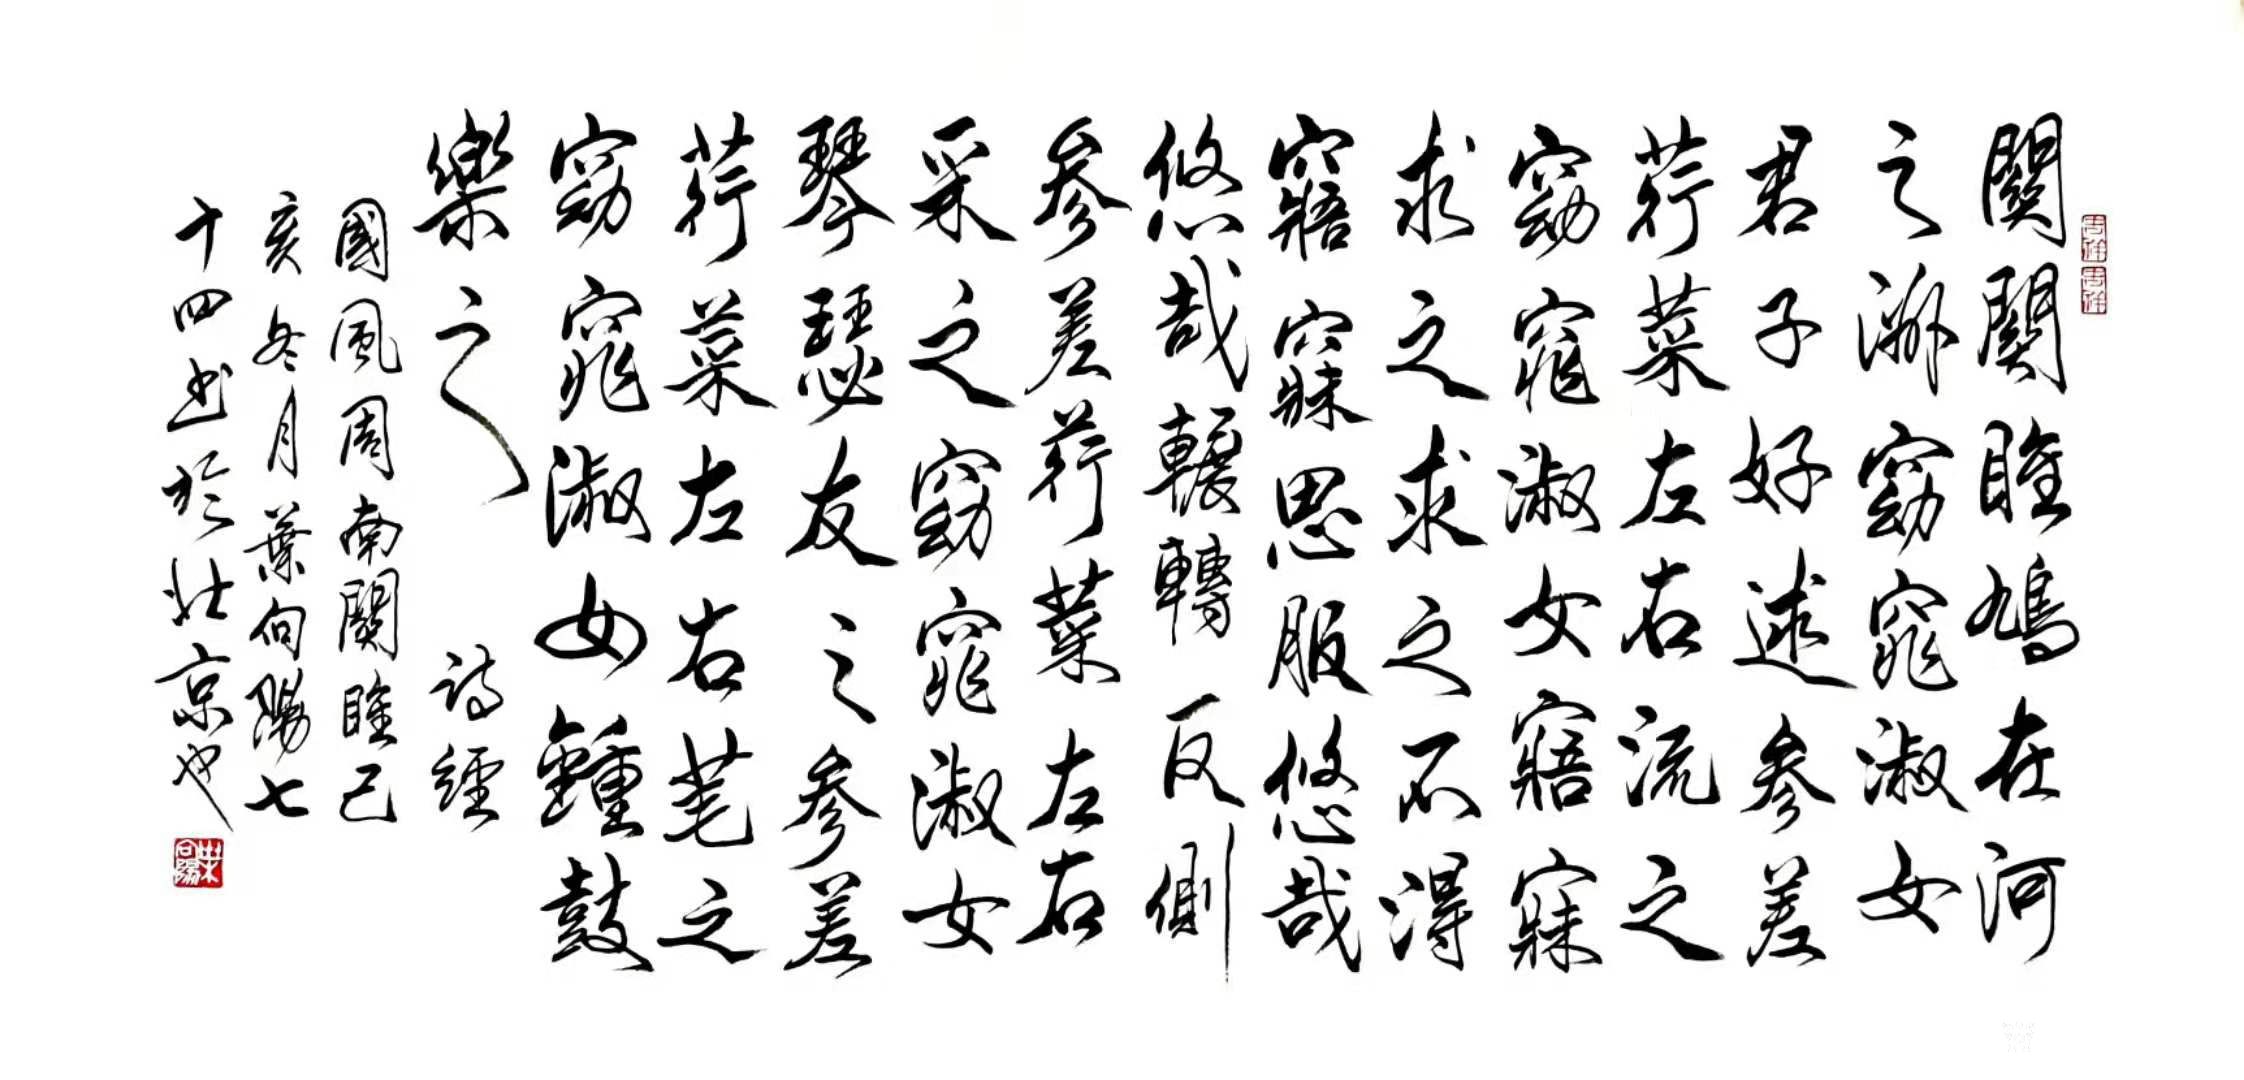 吉祥
吉祥
關關雎鳩在河
之洲窈窕淑女
君子好逑参差
荇菜左右流之
窈窕淑女寤寐
求之求之不得
寤寐思服悠哉
悠哉輾轉反側
参差荇菜左右
采之窈窕淑女
琴瑟友之参差
荇菜左右芼之
窈窕淑女鍾鼓
樂之 詩經
國風周南關雎己
亥冬月葉向陽七
十四书於北京也